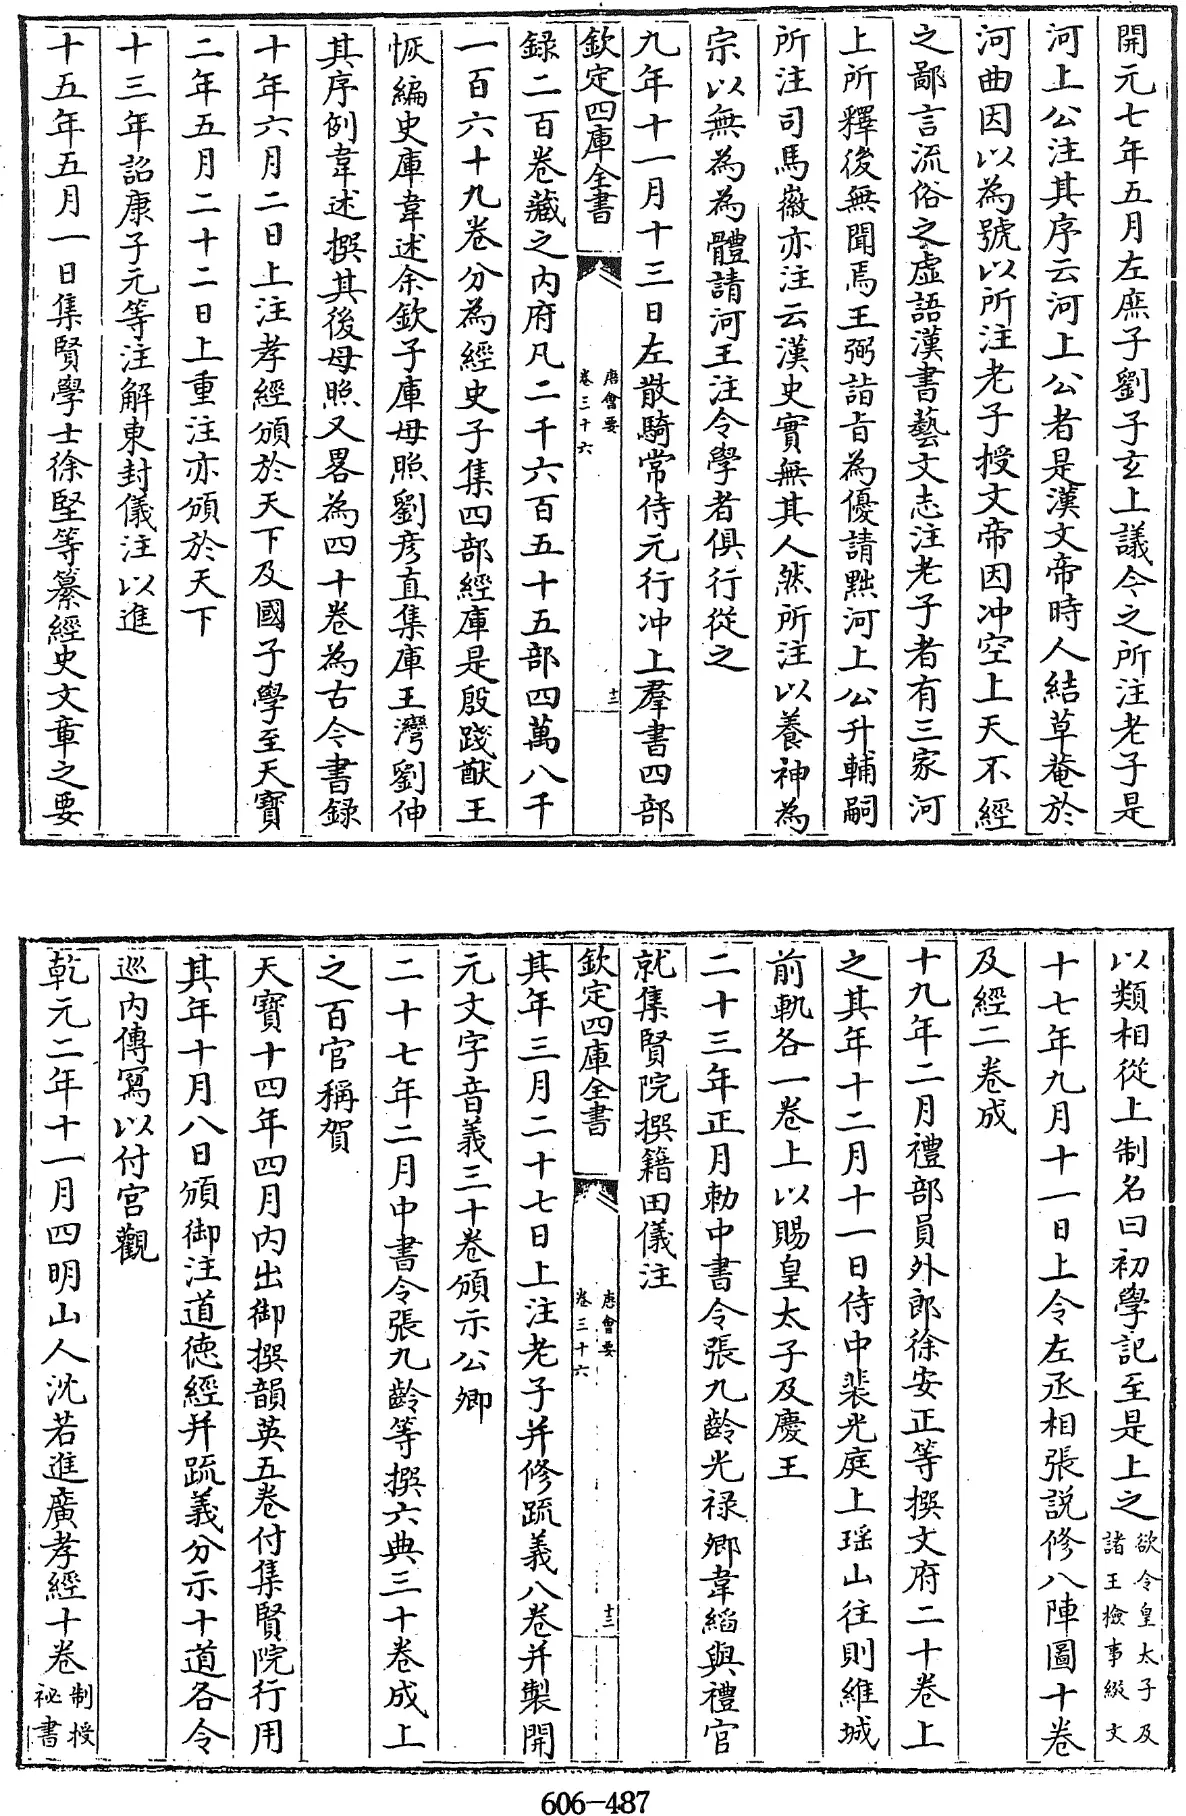 開元七年五月左庶子劉子玄上議今之所注老子是
河上公注其序云河上公者是漢文帝時人結草菴於
河曲因以為號以所注老子授文帝因冲空上天不經
之鄙言流俗之虛語漢書藝文志注老子者有三家河
上所釋後無聞焉王弼詣㫖為優請黜河上公升輔嗣
所注司馬徽亦注云漢史實無其人然所注以養神為
宗以無為為體請河王注令學者俱行從之
九年十一月十三日左散騎常侍元行冲上羣書四部
欽定四庫全書
唐會要
卷三十六
十二
録二百卷藏之内府凡二千六百五十五部四萬八千
一百六十九卷分為經史子集四部經庫是殷踐猷王
恢編史庫韋述余欽子庫毋照劉彦直集庫王灣劉仲
其序例韋述撰其後毋照又畧為四十卷為古今書録
十年六月二日上注孝經頒於天下及國子學至天寶
二年五月二十二日上重注亦頒於天下
十三年詔康子元等注解東封儀注以進
十五年五月一日集賢學士徐堅等纂經史文章之要
以類相從上制名曰初學記至是上之欲令皇太子及
諸王檢事綴文
十七年九月十一日上令左丞相張説修八陣圖十卷
及經二卷成
十九年二月禮部員外郎徐安正等撰文府二十卷上
之其年十二月十一日侍中裴光庭上瑶山往則維城
前軌各一卷上以賜皇太子及慶王
二十三年正月勅中書令張九齡光禄卿韋縚與禮官
就集賢院撰籍田儀注
欽定四庫全書
唐會要
卷三十六
十三
其年三月二十七日上注老子并修疏義八卷并製開
元文字音義三十卷頒示公卿
二十七年二月中書令張九齡等撰六典三十卷成上
之百官稱賀
天寶十四年四月内出御撰韻英五卷付集賢院行用
其年十月八日頒御注道德經并疏義分示十道各令
巡内傳寫以付宫觀
乾元二年十一月四明山人沈若進廣孝經十卷制授
祕書
606-487